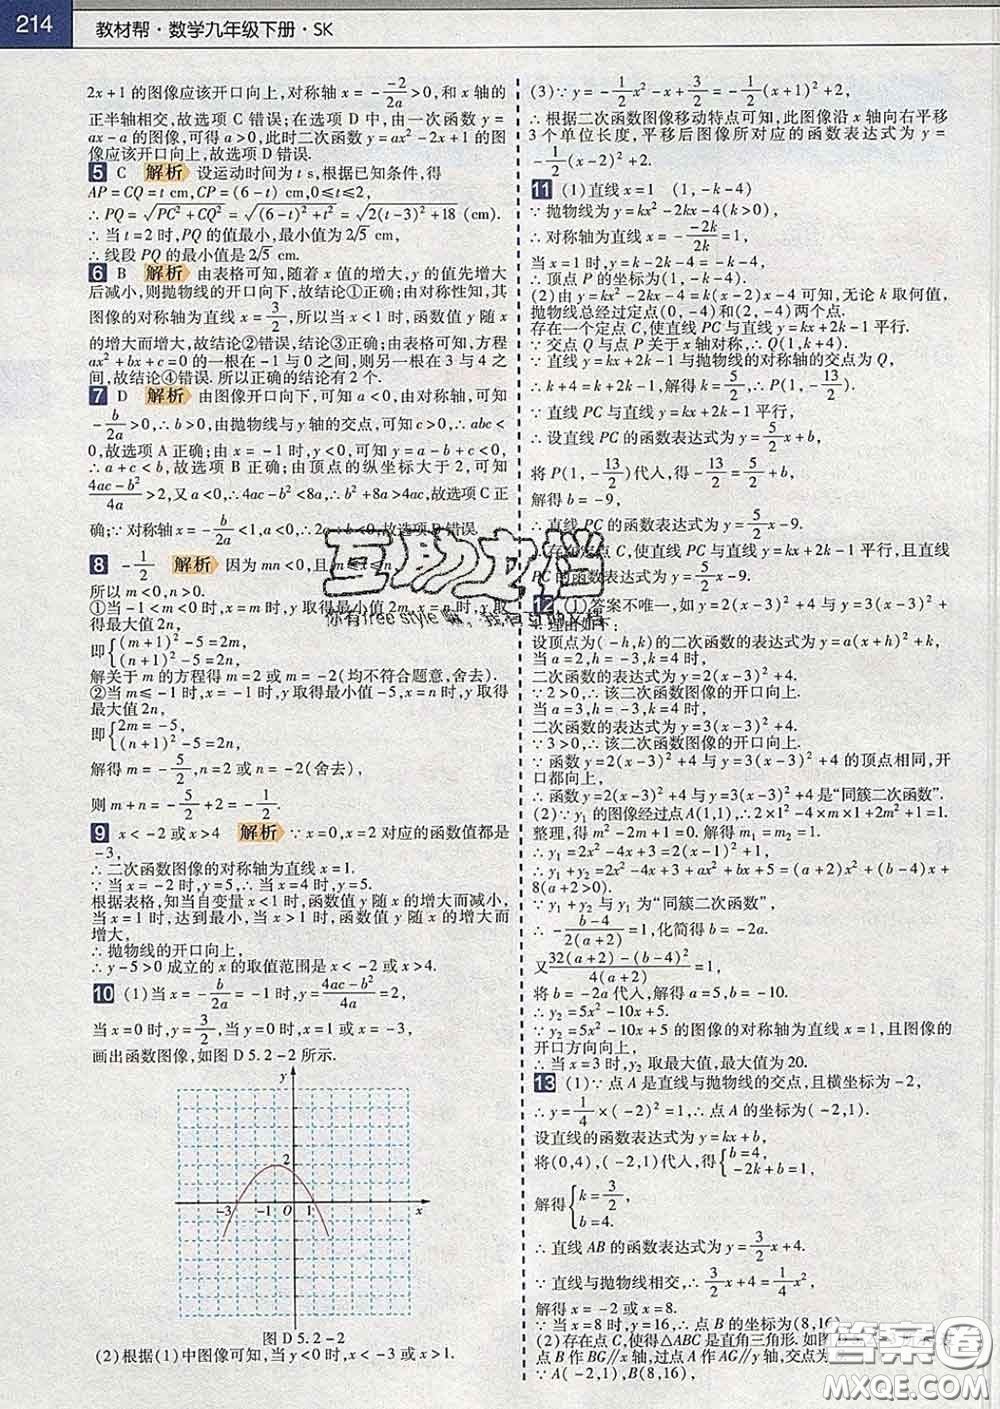 214
教材帮·数学九年级下册·SK
2x+1 的图像应该开口向上,对称轴 x = -\frac{-2}{2a}>0,和 x 轴的
正半轴相交,故选项 C 错误;在选项 D 中,由一次函数 y=
ax-a 的图像,可得 a>0,此时二次函数 y=ax²-2x+1 的图
像应该开口向上,故选项 D 错误.
5 C 解析 设运动时间为 t s,根据已知条件,得
AP=CQ=t cm,CP=(6-t) cm,0≤t≤2,
∴PQ=√(PC²+CQ²)=√((6-t)²+t²)=√(2(t-3)²+18) (cm).
∴当 t=2 时,PQ 的值最小,最小值为 2√5 cm.
∴线段 PQ 的最小值是 2√5 cm.
6 B 解析 由表格可知,随着 x 值的增大,y 的值先增大
后减小,则抛物线的开口向下,故结论①正确;由对称性知,其
图像的对称轴为直线 x=\frac{3}{2},所以当 x<1 时,函数值 y 随 x
的增大而增大,故结论②错误,结论③正确;由表格可知,方程
ax²+bx+c=0 的一根在 -1 与 0 之间,则另一根在 3 与 4 之
间,故结论④错误. 所以正确的结论有 2 个.
7 D 解析 由图像开口向下,可知 a<0,由对称轴,可知
-\frac{b}{2a}>0,∴b>0,由抛物线与 y 轴的交点,可知 c>0,∴abc<
0,故选项 A 正确;由图可知,当 x=-1 时,y=a-b+c<0,
∴a+c<b,故选项 B 正确;由顶点的纵坐标大于 2,可知
\frac{4ac-b²}{4a}>2,又 a<0,∴4ac-b²<8a,∴b²+8a>4ac,故选项 C 正
确;∵对称轴 x=-\frac{b}{2a}<1,a<0,∴2a+b<0,故选项 D 错误.
8 -\frac{1}{2} 解析 因为 mn<0,且 m≤x≤n,
所以 m<0,n>0.
①当 -1<m<0 时,x=m 时,y 取得最小值 2m,x=n 时,y 取
得最大值 2n,
即{(m+1)²-5=2m,
(n+1)²-5=2n,
解关于 m 的方程得 m=2 或 m=-2(均不符合题意,舍去).
②当 m≤-1 时,x=m 时,y 取得最小值 -5,x=n 时,y 取得
最大值 2n,
即{2m=-5,
(n+1)²-5=2n,
解得 m=-\frac{5}{2},n=2 或 n=-2(舍去),
则 m+n=-\frac{5}{2}+2=-\frac{1}{2}.
9 x<-2 或 x>4 解析 ∵x=0,x=2 对应的函数值都是
-3,
∴二次函数图像的对称轴为直线 x=1.
∵当 x=-2 时,y=5,∴当 x=4 时,y=5.
根据表格,知当自变量 x<1 时,函数值 y 随 x 的增大而减小,
当 x=1 时,达到最小,当 x>1 时,函数值 y 随 x 的增大而
增大,
∴抛物线的开口向上,
∴y-5>0 成立的 x 的取值范围是 x<-2 或 x>4.
10 (1)当 x=-\frac{b}{2a}=-1 时,y=\frac{4ac-b²}{4a}=2,
当 x=0 时,y=\frac{3}{2},当 y=0 时,x=1 或 x=-3,
画出函数图像,如图 D5.2-2 所示.
y
2
-3 -1 O 1 x
图 D5.2-2
(2)根据(1)中图像可知,当 y<0 时,x<-3 或 x>1.
(3)∵y=-\frac{1}{2}x²-x+\frac{3}{2}=-\frac{1}{2}(x+1)²+2,
∴根据二次函数图像移动特点可知,此图像沿 x 轴向右平移
3 个单位长度,平移后图像所对应的函数表达式为 y=
-\frac{1}{2}(x-2)²+2.
11 (1)直线 x=1 (1,-k-4)
∵抛物线为 y=kx²-2kx-4(k>0),
∴对称轴为直线 x=-\frac{-2k}{2k}=1,
当 x=1 时,y=k-2k-4=-k-4,
∴顶点 P 的坐标为(1,-k-4).
(2)由 y=kx²-2kx-4=k(x-2)x-4 可知,无论 k 取何值,
抛物线总经过定点(0,-4)和(2,-4)两个点.
存在一个定点 C,使直线 PC 与直线 y=kx+2k-1 平行.
∵交点 Q 与点 P 关于 x 轴对称,∴Q(1,k+4).
∵直线 y=kx+2k-1 与抛物线的对称轴的交点为 Q,
∴k+4=k+2k-1,解得 k=\frac{5}{2},∴P(1,-\frac{13}{2}).
∵直线 PC 与直线 y=kx+2k-1 平行,
∴设直线 PC 的函数表达式为 y=\frac{5}{2}x+b,
将 P(1,-\frac{13}{2})代入,得 -\frac{13}{2}=\frac{5}{2}+b,
解得 b=-9,
∴直线 PC 的函数表达式为 y=\frac{5}{2}x-9.
∴存在定点 C,使直线 PC 与直线 y=kx+2k-1 平行,且直线
PC 的函数表达式为 y=\frac{5}{2}x-9.
12 (1)答案不唯一,如 y=2(x-3)²+4 与 y=3(x-3)²+
4. 理由如下:
设顶点为(-h,k)的二次函数的表达式为 y=a(x+h)²+k,
当 a=2,h=-3,k=4 时,
二次函数的表达式为 y=2(x-3)²+4.
∵2>0,∴该二次函数图像的开口向上.
当 a=3,h=-3,k=4 时,
二次函数的表达式为 y=3(x-3)²+4.
∵3>0,∴该二次函数图像的开口向上.
∵函数 y=2(x-3)²+4 与 y=3(x-3)²+4 的顶点相同,开
口都向上,
∴函数 y=2(x-3)²+4 与 y=3(x-3)²+4 是“同簇二次函数”.
(2)∵y₁ 的图像经过点 A(1,1),∴2×1²-4×m×1+2m²+1=1.
整理,得 m²-2m+1=0. 解得 m₁=m₂=1.
∴y₁=2x²-4x+3=2(x-1)²+1,
∴y₁+y₂=2x²-4x+3+ax²+bx+5=(a+2)x²+(b-4)x+
8(a+2>0).
∵y₁+y₂ 与 y₁ 为“同簇二次函数”,
∴-\frac{b-4}{2(a+2)}=1,化简得 b=-2a.
又\frac{32(a+2)-(b-4)²}{4(a+2)}=1,
将 b=-2a 代入,解得 a=5,b=-10.
∴y₂=5x²-10x+5.
∵y₂=5x²-10x+5 的图像的对称轴为直线 x=1,且图像的
开口方向向上,
∴当 x=3 时,y₂ 取最大值,最大值为 20.
13 (1)∵点 A 是直线与抛物线的交点,且横坐标为 -2,
∴y=\frac{1}{4}×(-2)²=1,∴点 A 的坐标为(-2,1).
设直线的函数表达式为 y=kx+b,
将(0,4),(-2,1)代入,得{b=4,
-2k+b=1,
解得{k=\frac{3}{2},
b=4.
∴直线 AB 的函数表达式为 y=\frac{3}{2}x+4.
∵直线与抛物线相交,∴\frac{3}{2}x+4=\frac{1}{4}x²,
解得 x=-2 或 x=8.
∵当 x=8 时,y=16,∴点 B 的坐标为(8,16).
(2)存在点 C,使得△ABC 是直角三角形. 如图
点 B 作 BG∥x 轴,过点 A 作 AG∥y 轴,交点为
∵A(-2,1),B(8,16),
互助文档
你有free style嘛,我有互助文档
答案圈
MXQE.COM